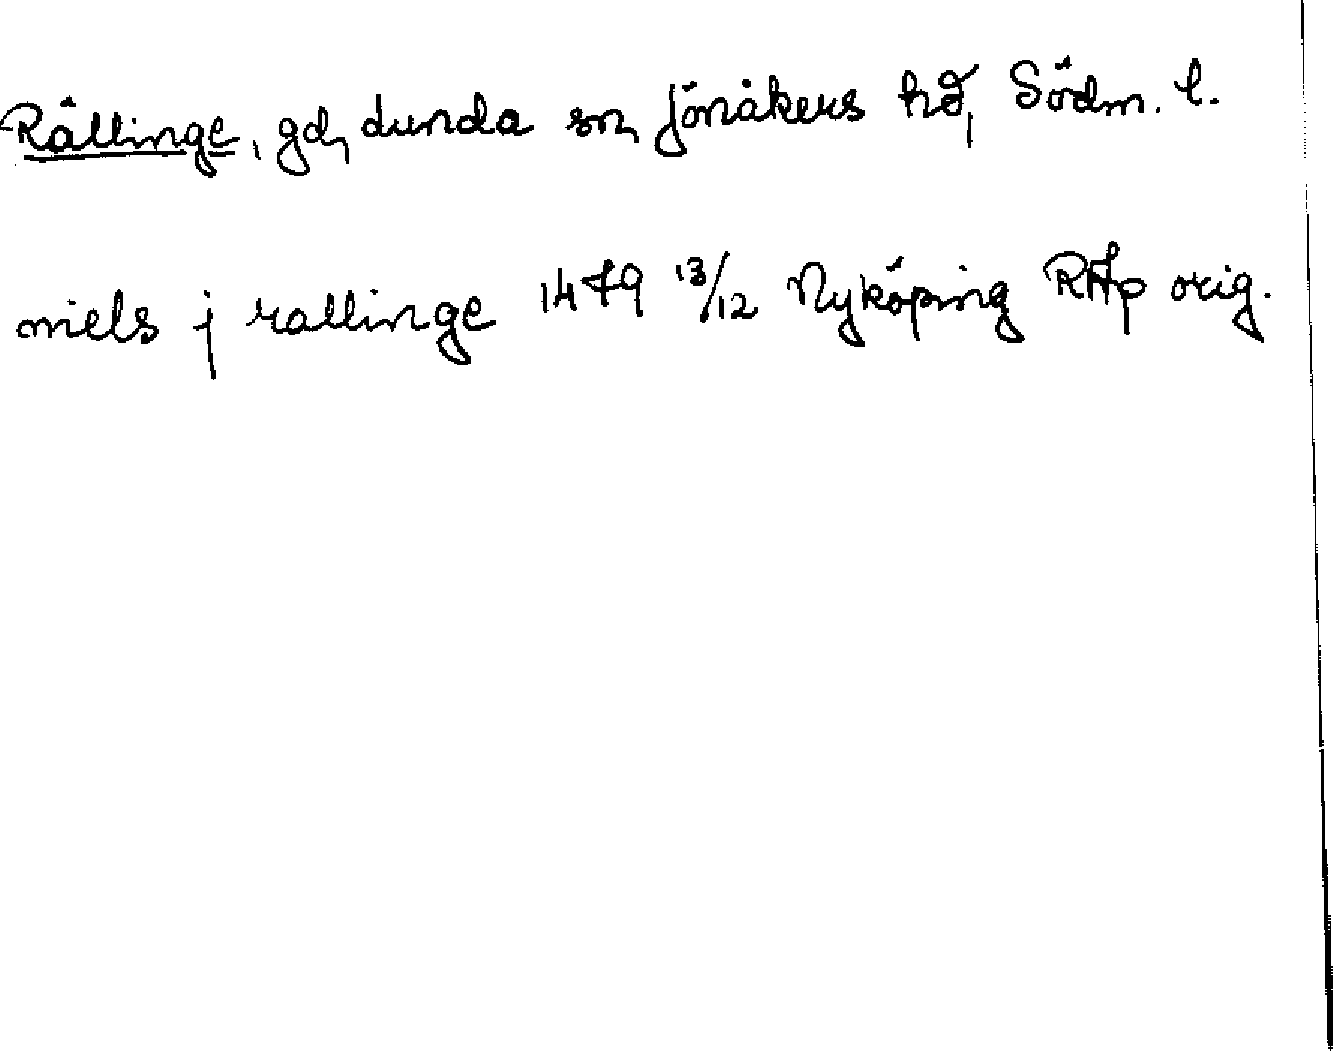 Rållinge, gd, Lunda sn, Jönåkers hd, Södm. l.
niels j rallinge 1479 13/12 Nyköping RAp orig.